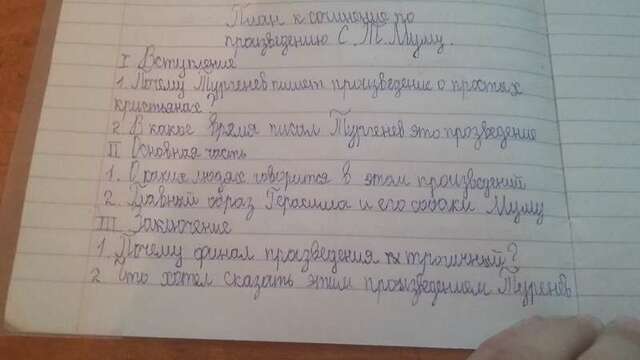 План к сочинению по
произведению С. Т. Муму.
I Вступление
1. Почему Тургенев пишет произведение о простых
кристьянах?
2. В какое время писал Тургенев это прозведение
II Основная часть
1. О каких людях говорится в этом произведений
2. Главный образ Герасима и его собаки Муму
III Заключение
1. Почему финал произведения трогичный?
2 Что хотел сказать этим произведением Тургенев